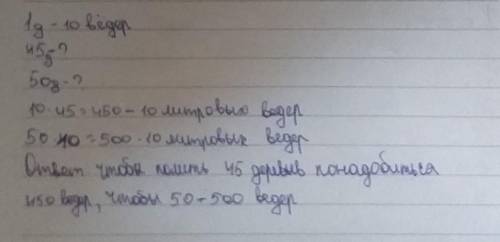 1д - 10 вёдер
45д-?
50д-?
10·45=450-10 литровых ведер
50·10=500·10 литровых ведер
Ответ чтобы полить 45 деревьв понадобиться
450 ведер, чтобы 50-500 ведер